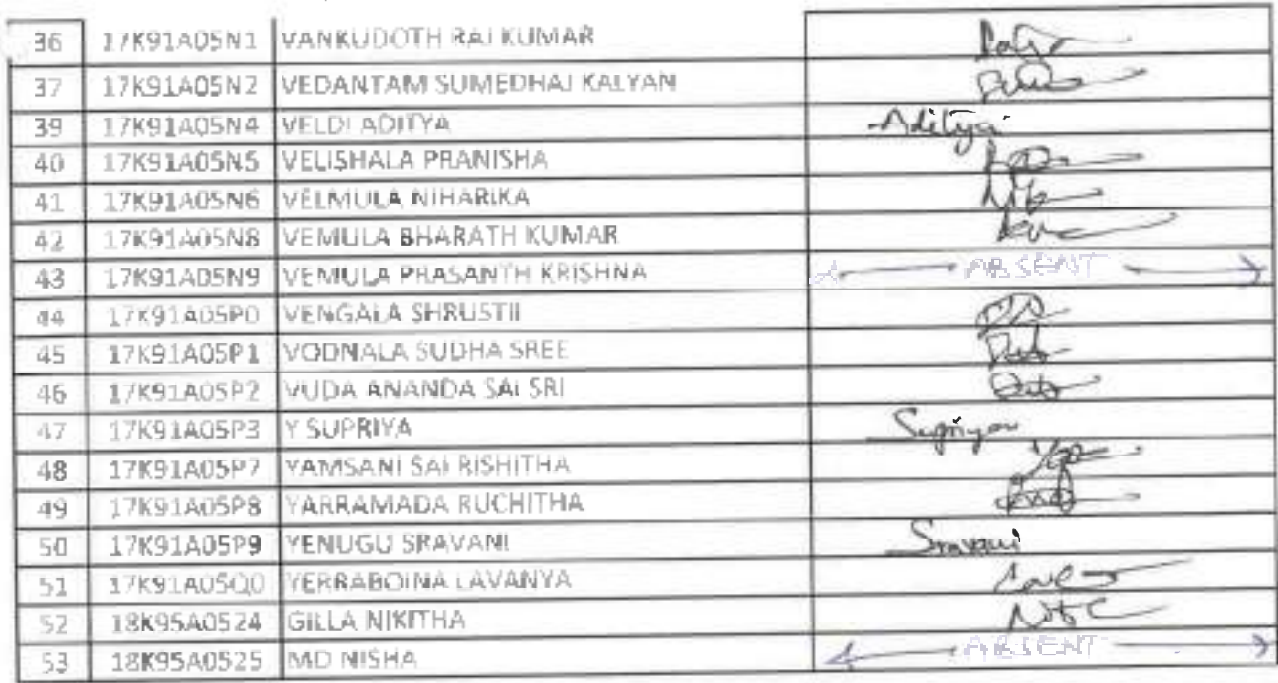 36 17K91A05N1 VANKUDOTH RAJ KUMAR
37 17K91A05N2 VEDANTAM SUMEDHAJ KALYAN
39 17K91A05N4 VELDI ADITYA Aditya
40 17K91A05N5 VELISHALA PRANISHA
41 17K91A05N6 VELMULA NIHARIKA
42 17K91A05N8 VEMULA BHARATH KUMAR
43 17K91A05N9 VEMULA PRASANTH KRISHNA ABSENT
44 17K91A05P0 VENGALA SHRUSTII
45 17K91A05P1 VODNALA SUDHA SREE
46 17K91A05P2 VUDA ANANDA SAI SRI
47 17K91A05P3 Y SUPRIYA Supriya
48 17K91A05P7 YAMSANI SAI RISHITHA
49 17K91A05P8 YARRAMADA RUCHITHA
50 17K91A05P9 YENUGU SRAVANI Sravani
51 17K91A05Q0 YERRABOINA LAVANYA
52 18K95A0524 GILLA NIKITHA
53 18K95A0525 MD NISHA ABSENT